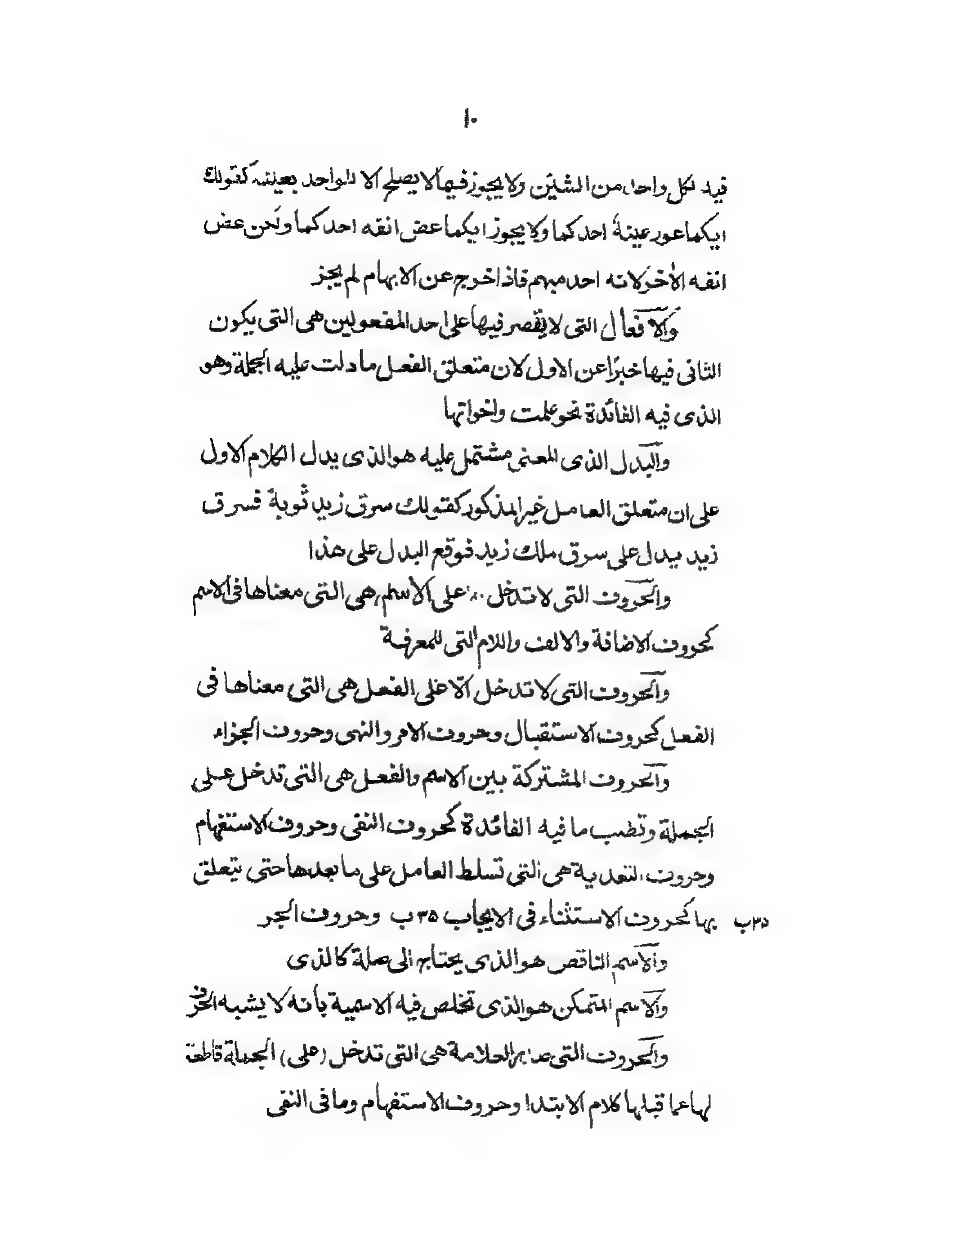 ١٠
فيه لكل واحد من الشيئين ولا يجوز فيها لا يصلح الا للواحد بعينه كقولك
ايكما عور عينهُ احدكما ولا يجوز ايكما عض انفه احدكما ولكن عض
انفه الآخر لانه احد مبهم فاذا خرج عن الابهام لم يجز
والافعال التى لا يقصر فيها على احد المفعولين هى التى يكون
الثانى فيها خبرًا عن الاول لان متعلق الفعل ما دلت عليه الجملة وهو
الذى فيه الفائدة نحو علمت واخواتها
والبدل الذى المعنى مشتمل عليه هو الذى يدل الكلام الاول
على ان متعلق العامل غير المذكور كقولك سرق زيد ثوبهُ فسرق
زيد يدل على سرق ملك زيد فوقع البدل على هذا
والحروف التى لا تدخل الا على الاسم هى التى معناها فى الاسم
كحروف الاضافة والالف واللام التى للمعرفة
والحروف التى لا تدخل الّا على الفعل هى التى معناها فى
الفعل كحروف الاستقبال وحروف الامر والنهى وحروف الجزاء
والحروف المشتركة بين الاسم والفعل هى التى تدخل على
الجملة وتطلب ما فيه الفائدة كحروف النفى وحروف الاستفهام
وحروف التعدية هى التى تسلط العامل على ما بعدها حتى يتعلق
بها كحروف الاستثناء فى الايجاب ٣٥ب وحروف الجر ٣٥ب
والاسم الناقص هو الذى يحتاج الى صلة كالذى
والاسم المتمكن هو الذى تخلص فيه الاسمية بأنه لا يشبه الحرف
والحروف التى العلامة هى التى تدخل (على) الجملة قاطعة
لها عما قبلها كلام الابتدا وحروف الاستفهام وما فى النفى